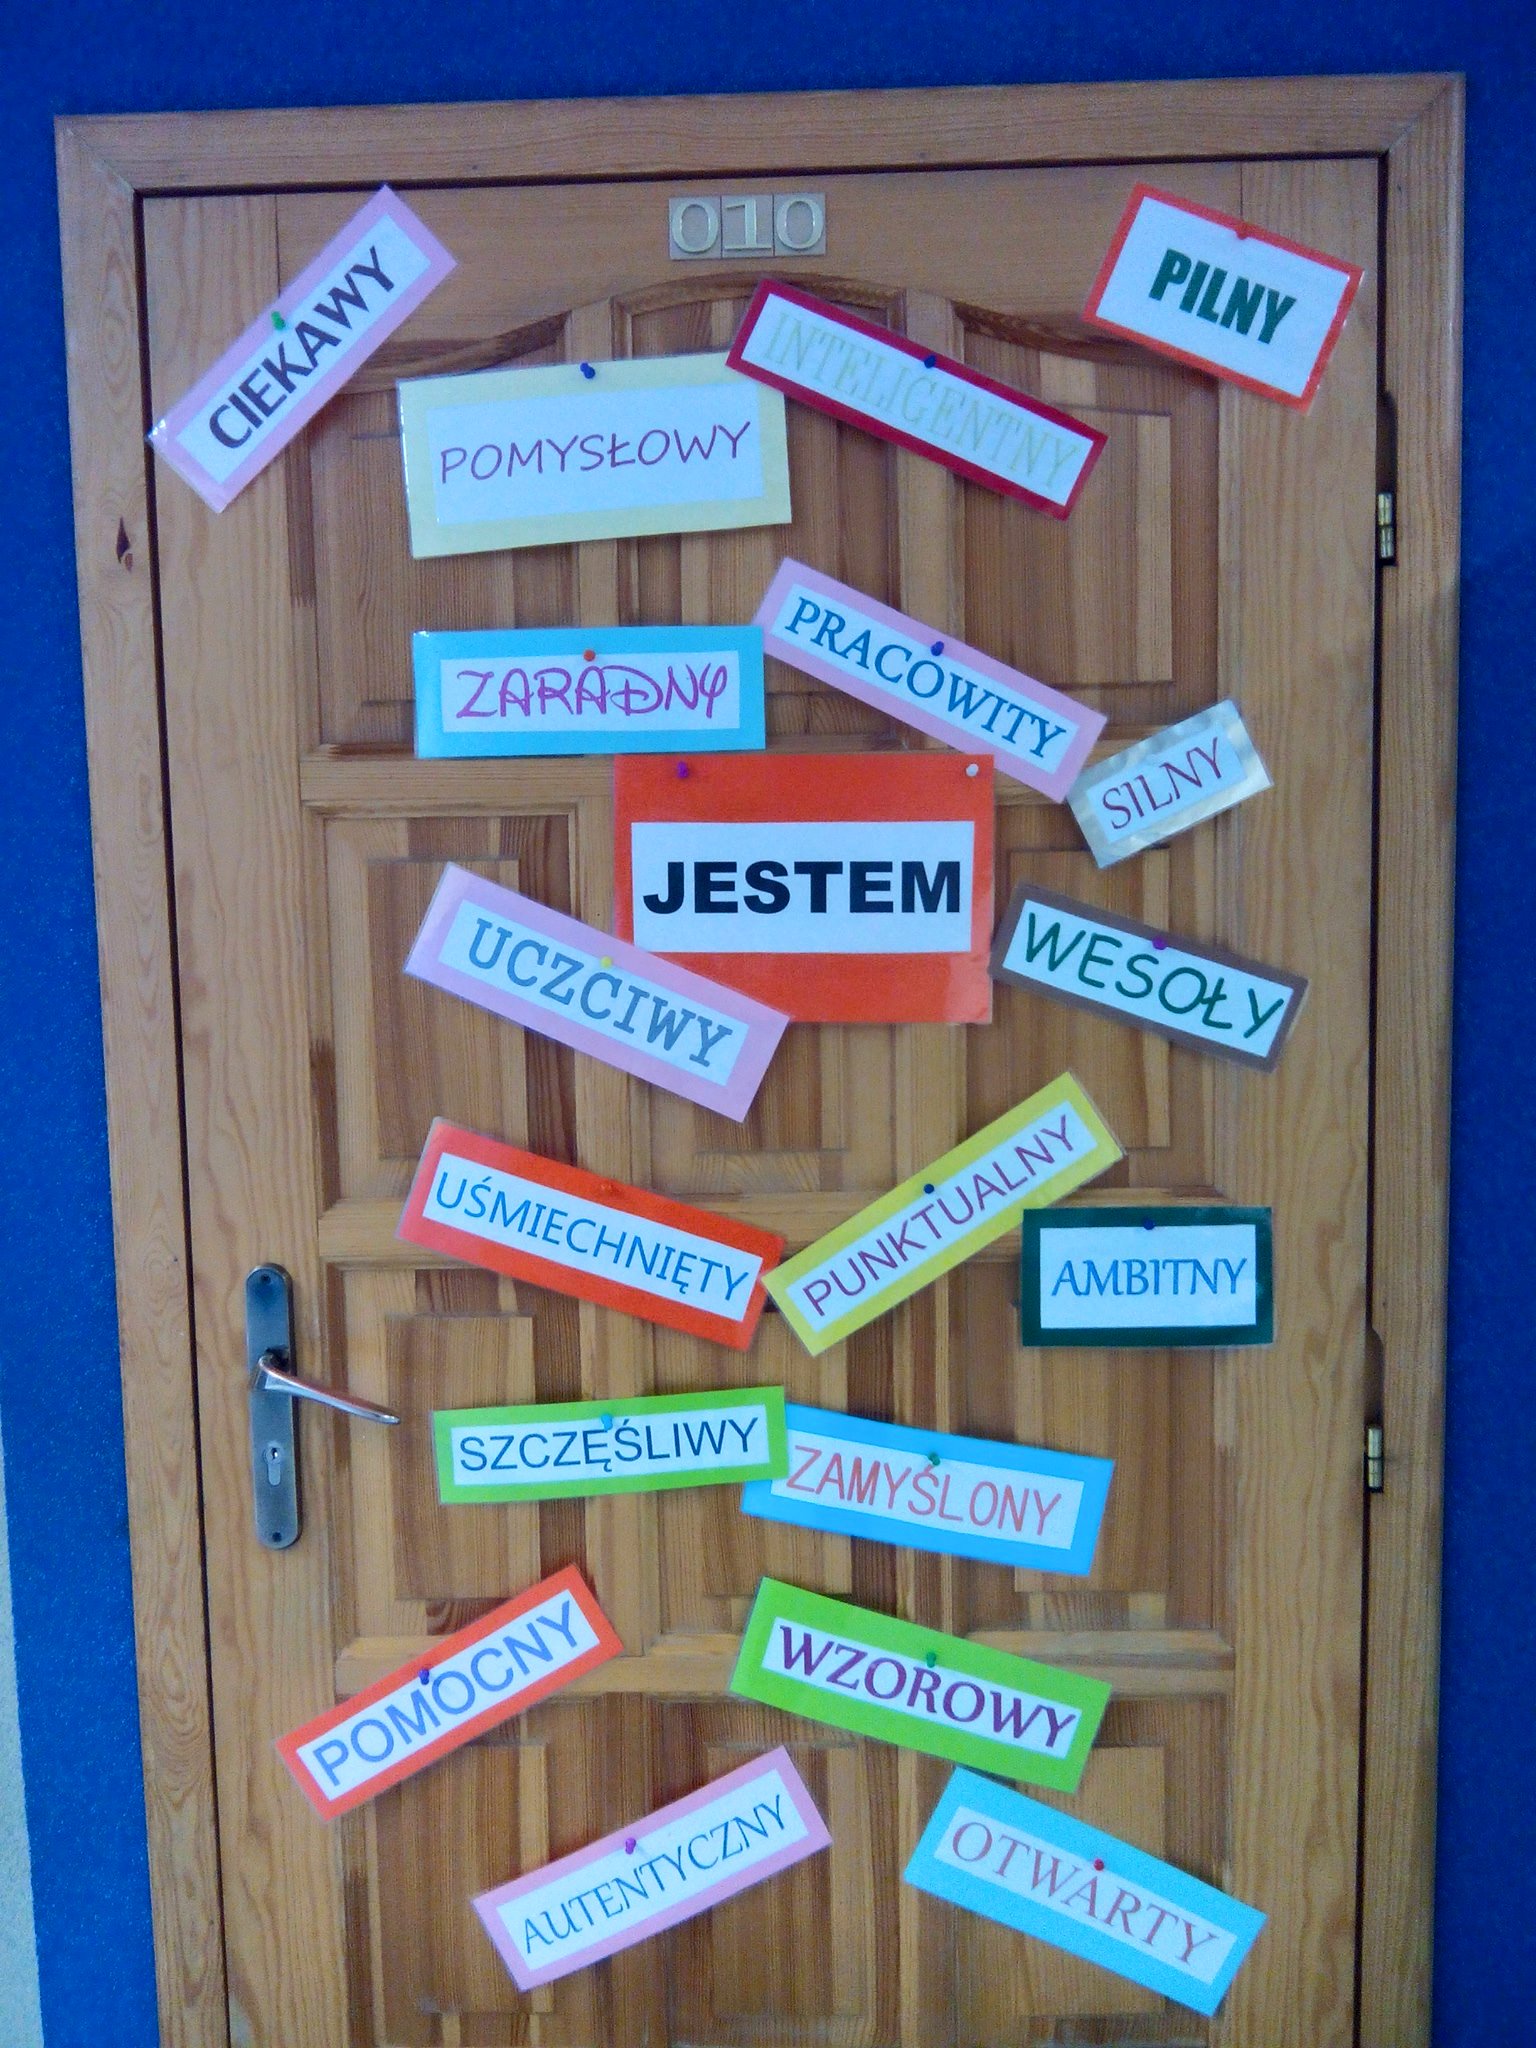 010
CIEKAWY
PILNY
INTELIGENTNY
POMYSŁOWY
PRACOWITY
ZARADNY
SILNY
JESTEM
UCZCIWY
WESOŁY
UŚMIECHNIĘTY
PUNKTUALNY
AMBITNY
SZCZĘŚLIWY
ZAMYŚLONY
POMOCNY
WZOROWY
AUTENTYCZNY
OTWARTY